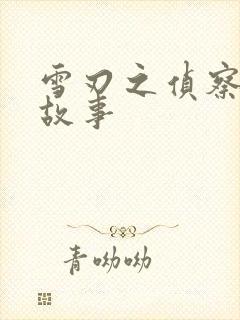 雪刃之偵察
故事
青呦呦